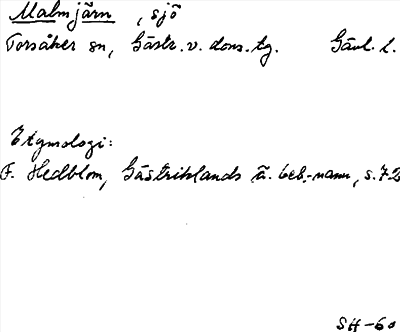 Malmjärn, sjö
Torsåker sn, Gästr. v. doms. tg. Gävl. l.
Etymologi:
F. Hedblom, Gästriklands ä. beb.-namn, s. 72
SH-60